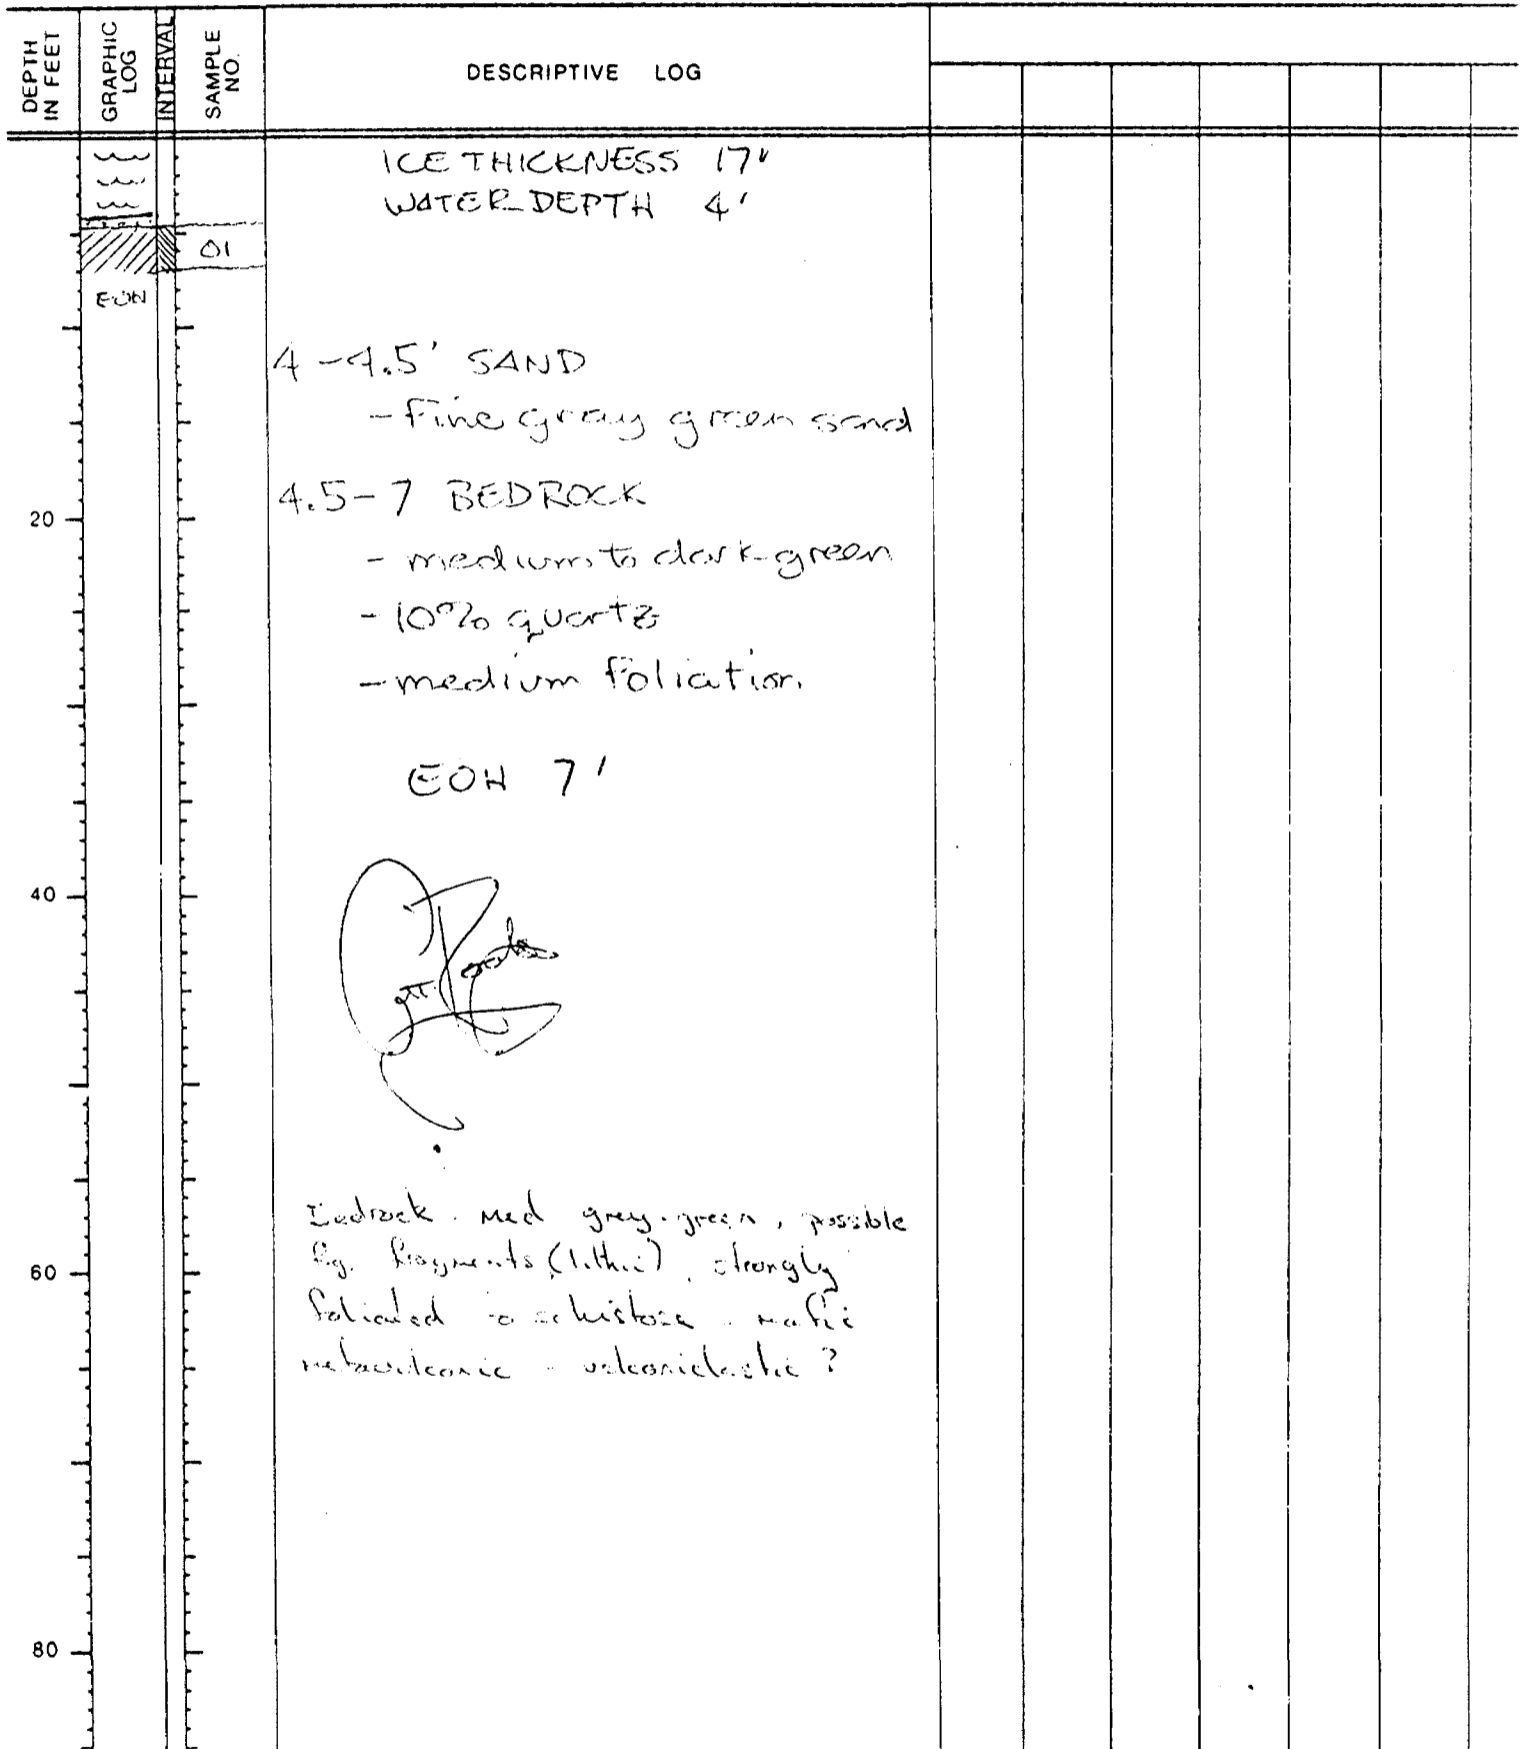 DEPTH IN FEET
GRAPHIC LOG
INTERVAL
SAMPLE NO.
DESCRIPTIVE LOG
ICE THICKNESS 17"
WATER DEPTH 4'
01
EOH
4-4.5' SAND
- Fine gray green sand
4.5-7 BEDROCK
20
- medium to dark green
- 10% quartz
- medium foliation.
EOH 7'
40
Bedrock. Med grey-green, possible
60
fg. fragments (lithic), strongly
foliated to schistose - mafic
metavolcanic - volcaniclastic?
80